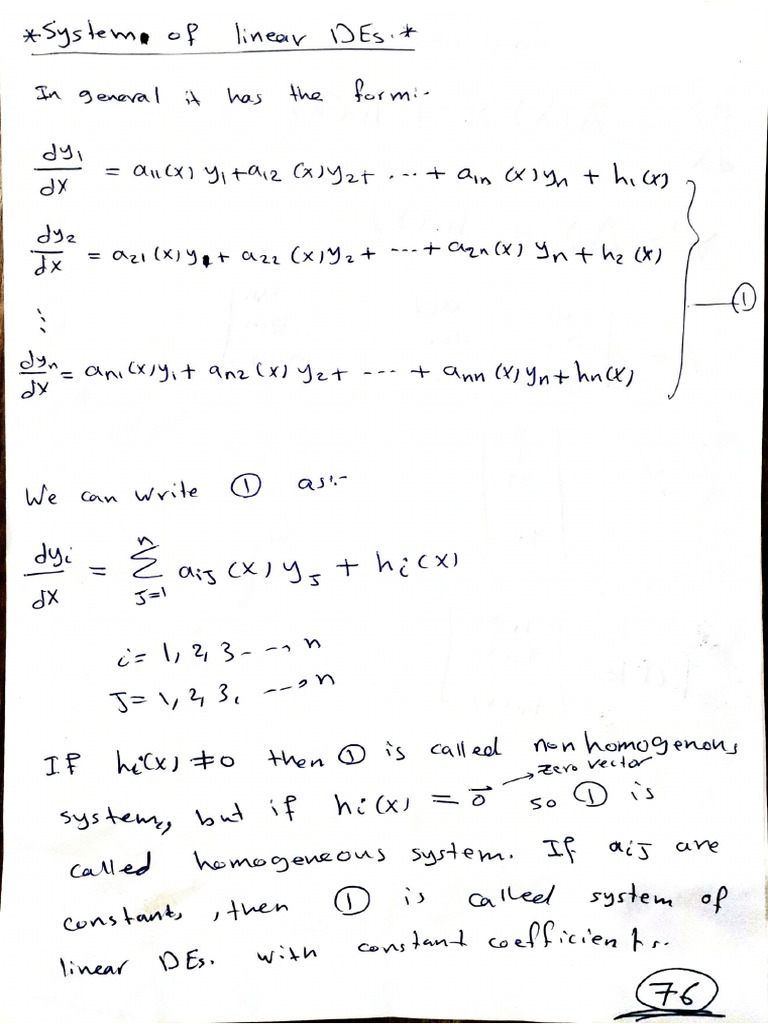 *System of linear DEs.*
In general it has the form:-
dy₁/dx = a₁₁(x) y₁ + a₁₂ (x) y₂ + ... + a₁ₙ (x) yₙ + h₁(x)
dy₂/dx = a₂₁(x) y₁ + a₂₂ (x) y₂ + ... + a₂ₙ(x) yₙ + h₂ (x)
①
⋮
dyₙ/dx = aₙ₁(x) y₁ + aₙ₂ (x) y₂ + --- + aₙₙ (x) yₙ + hₙ(x)
We can write ① as:-
dyᵢ/dx = Σ_{J=1}^{n} aᵢⱼ (x) yⱼ + hᵢ(x)
i = 1, 2, 3 - - -, n
J = 1, 2, 3, ---, n
If hᵢ(x) ≠ 0 then ① is called non homogenous
→ zero vector
system, but if hᵢ(x) = 0⃗ so ① is
called homogeneous system. If aᵢⱼ are
constant, then ① is called system of
linear DEs. with constant coefficients.
76